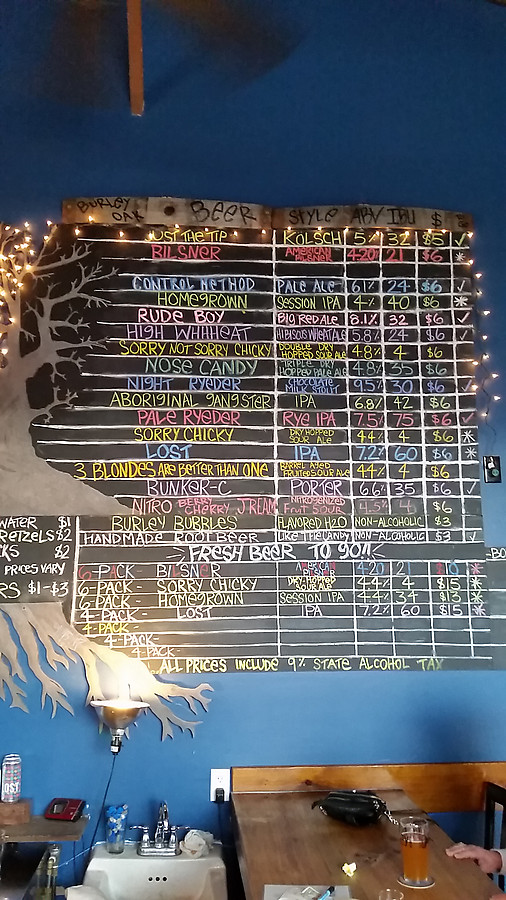 BURLEY OAK BEER STYLE ABV IBU $
JUST THE TIP KOLSCH 5% 32 $5 ✓
BILSNER AMERICAN PILSNER 4.20 21 $6 *
CONTROL METHOD PALE ALE 6.1% 24 $6 ✓
HOMEGROWN SESSION IPA 4% 40 $6 *
RUDE BOY BIG RED ALE 8.1% 32 $6 ✓
HIGH WHHHEAT HIBISCUS WHEAT ALE 5.8% 24 $6
SORRY NOT SORRY CHICKY DOUBLE DRY HOPPED SOUR ALE 4.8% 4 $6
NOSE CANDY TRIPLE DRY HOPPED PALE ALE 4.8% 35 $6
NIGHT RYEDER CHOCOLATE MILK STOUT 9.5% 30 $6 ✓
ABORIGINAL GANGSTER IPA 6.8% 42 $6
PALE RYEDER RYE IPA 7.5% 75 $6 ✓
SORRY CHICKY DRY HOPPED SOUR ALE 4.4% 4 $6 *
LOST IPA 7.2% 60 $6 *
3 BLONDES ARE BETTER THAN ONE BARREL AGED FRUITED SOUR ALE 4.4% 4 $6
BUNKER-C PORTER 6.6% 35 $6 ✓
NITRO BERRY CHERRY J'REAM NITROGENIZED FRUIT SOUR 4.5% 4 $6
BURLEY BUBBLES FLAVORED H2O NON-ALCOHOLIC $3
HANDMADE ROOT BEER LIKE THE CANDY NON-ALCOHOLIC $3 ✓
WATER $1
PRETZELS $2
$2
PRICES VARY
$1-$3
FRESH BEER TO GO!!
6-PACK- BILSNER AMERICAN PILSNER 4.20 21 $10 *
6-PACK- SORRY CHICKY DRY-HOPPED SOUR ALE 4.4% 4 $15 *
6-PACK- HOMEGROWN SESSION IPA 4.4% 34 $13 *
4-PACK- LOST IPA 7.2% 60 $15 *
4-PACK-
4-PACK-
4-PACK-
ALL PRICES INCLUDE 9% STATE ALCOHOL TAX